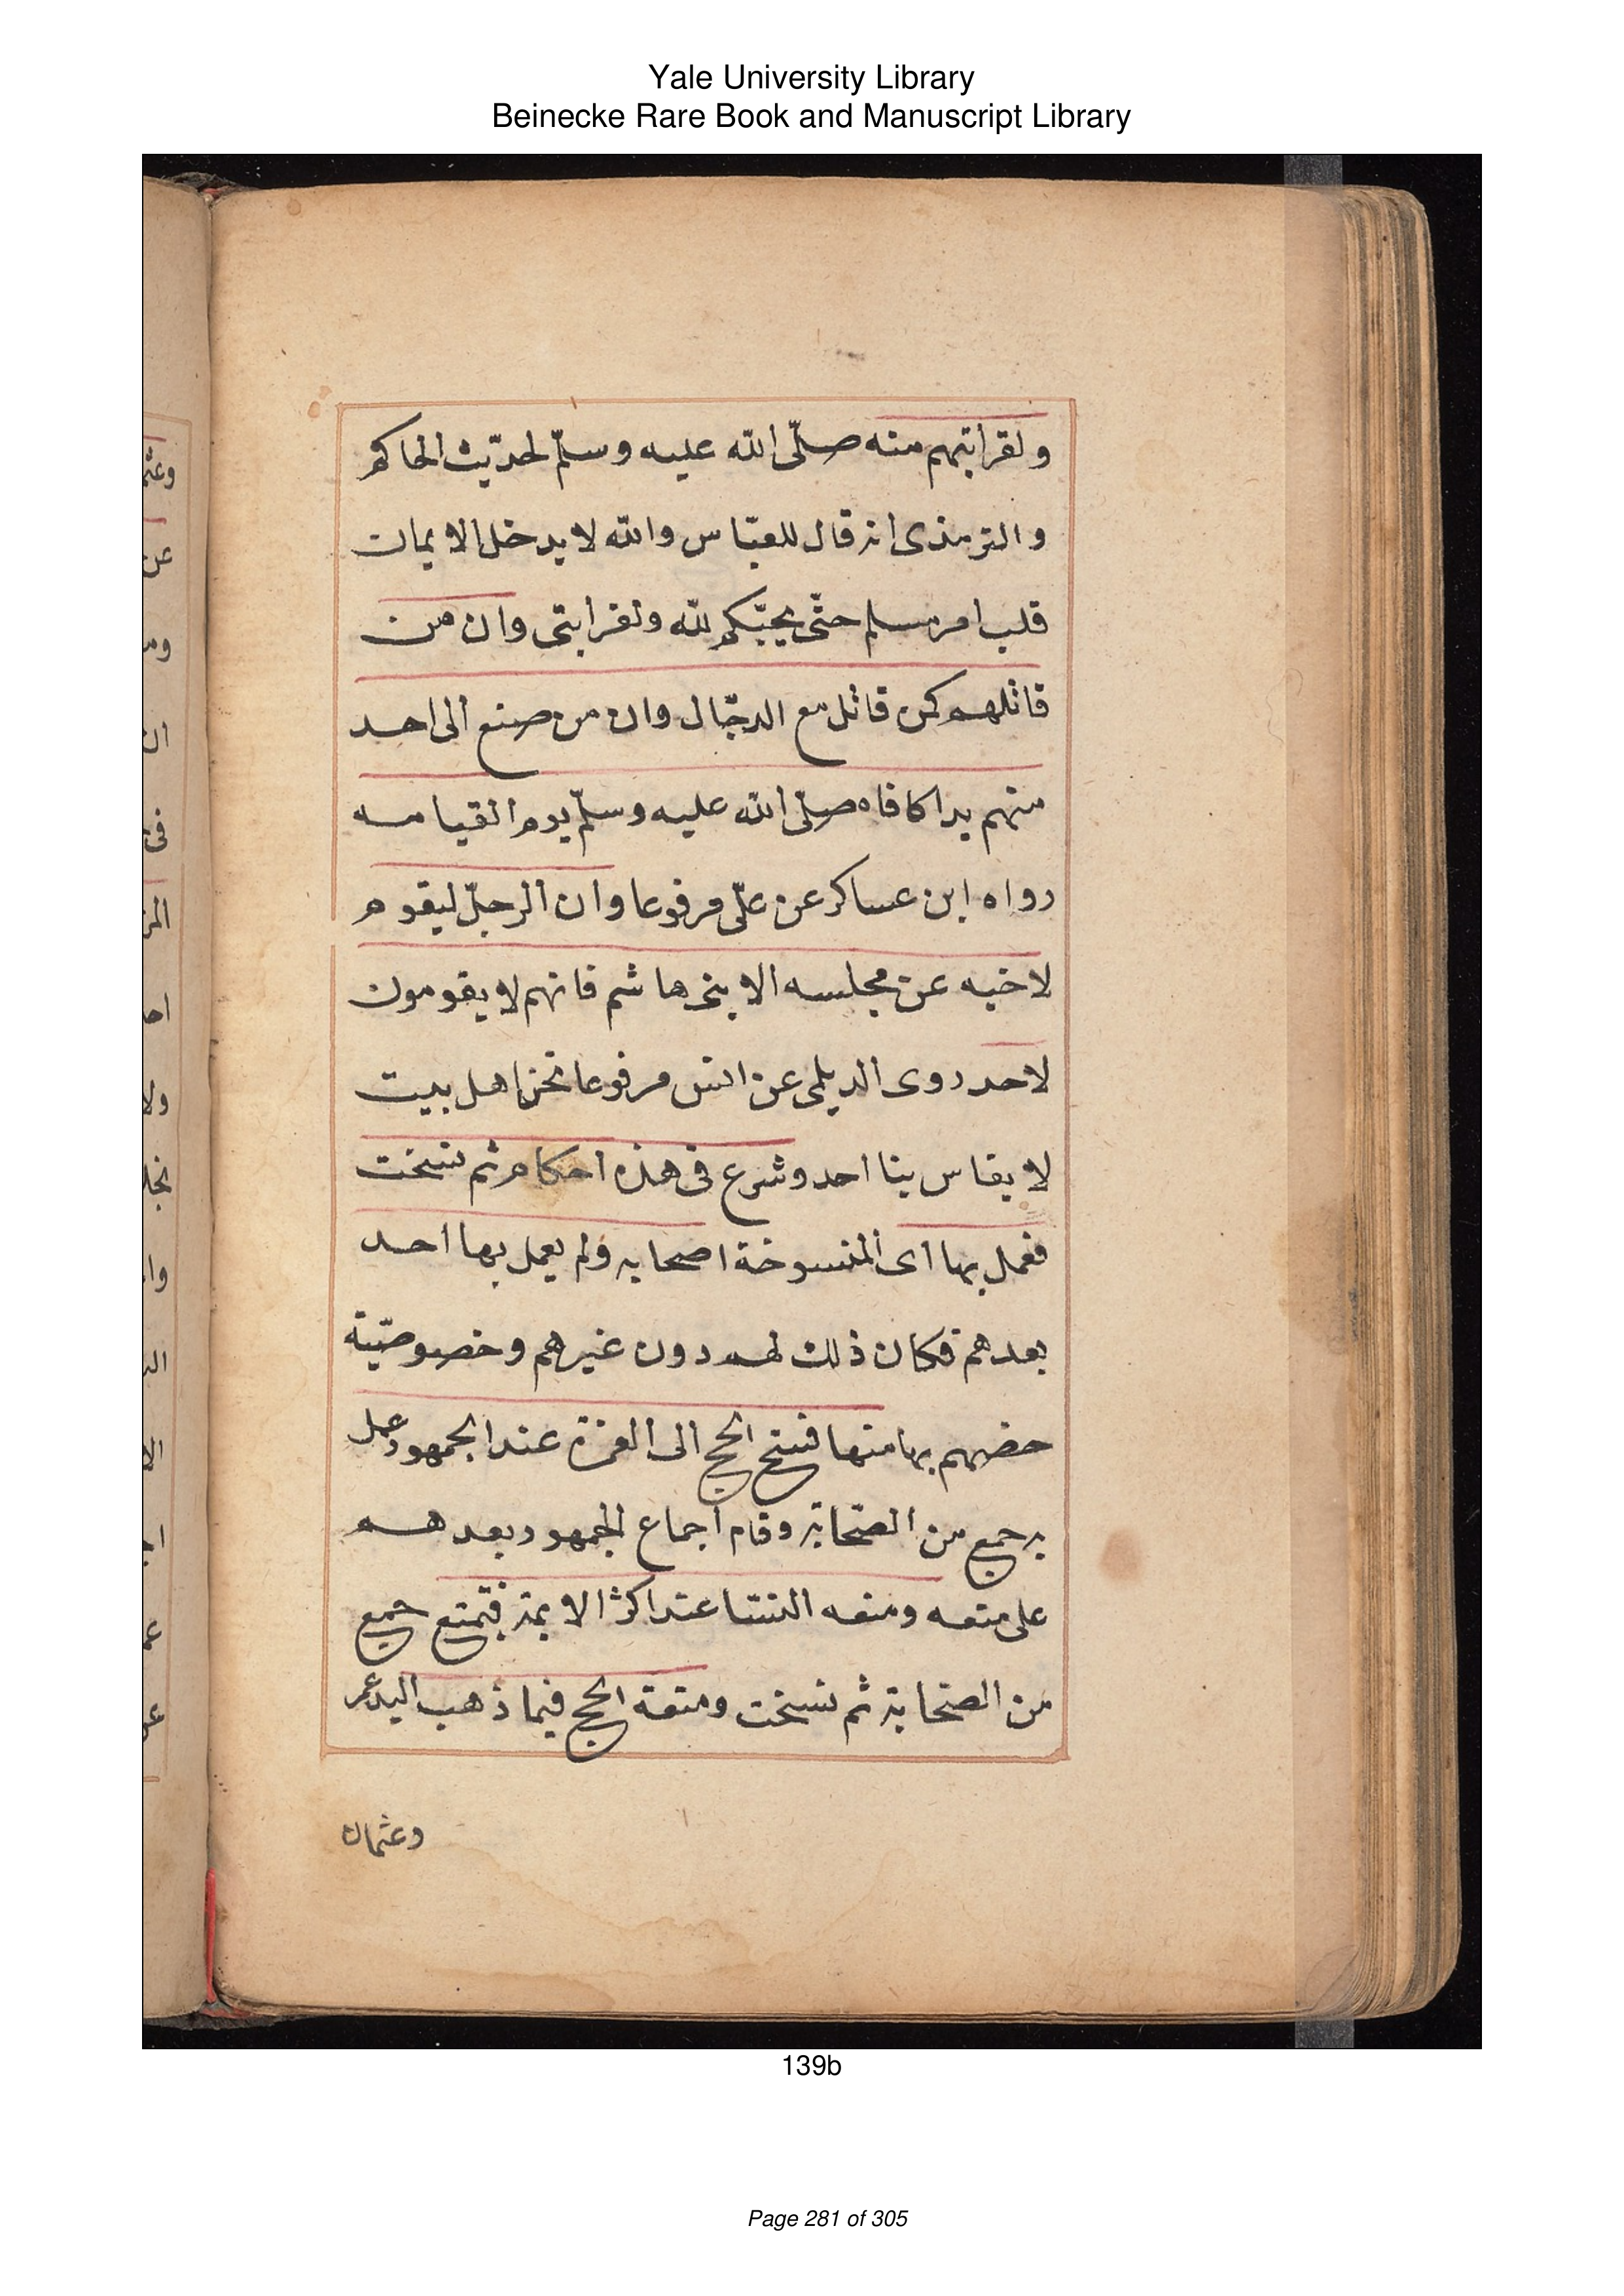 Yale University Library
Beinecke Rare Book and Manuscript Library
ولقرابتهم منه صلّى الله عليه وسلّم لحديث الحاكم
والترمذى انه قال للعبّاس والله لا يدخل الايمان
قلب امرمسلم حتّى يحبّكم لله ولقرابتى وان من
قاتلهم كمن قاتل مع الدجّال وان من صنع الى احد
منهم يدا كافاه صلّى الله عليه وسلّم يوم القيامه
رواه ابن عساكر عن علّى مرفوعا وان الرجلّ ليقوم
لاخيه عن مجلسه الا بنى هاشم فانهم لا يقومون
لاحد روى الديلمى عن انس مرفوعا نحن اهل بيت
لا يقاس بنا احد وشرع فى هذه احكام ثم نسخت
فعمل بها اى المنسوخة اصحابه ولم يعمل بها احد
بعدهم فكان ذلك لهم دون غيرهم وخصوصيّة
خصهم بها منها فسخ الحج الى العمرة عند الجمهور عمل
به جميع من الصّحابة وقام اجماع الجمهور بعدهم
على منعه ومتعه النسا عند اكثر الايمة فتمتع جميع
من الصحابة ثم نسخت ومتعة الحج فيما ذهب اليه عمر
وعثمان
139b
Page 281 of 305